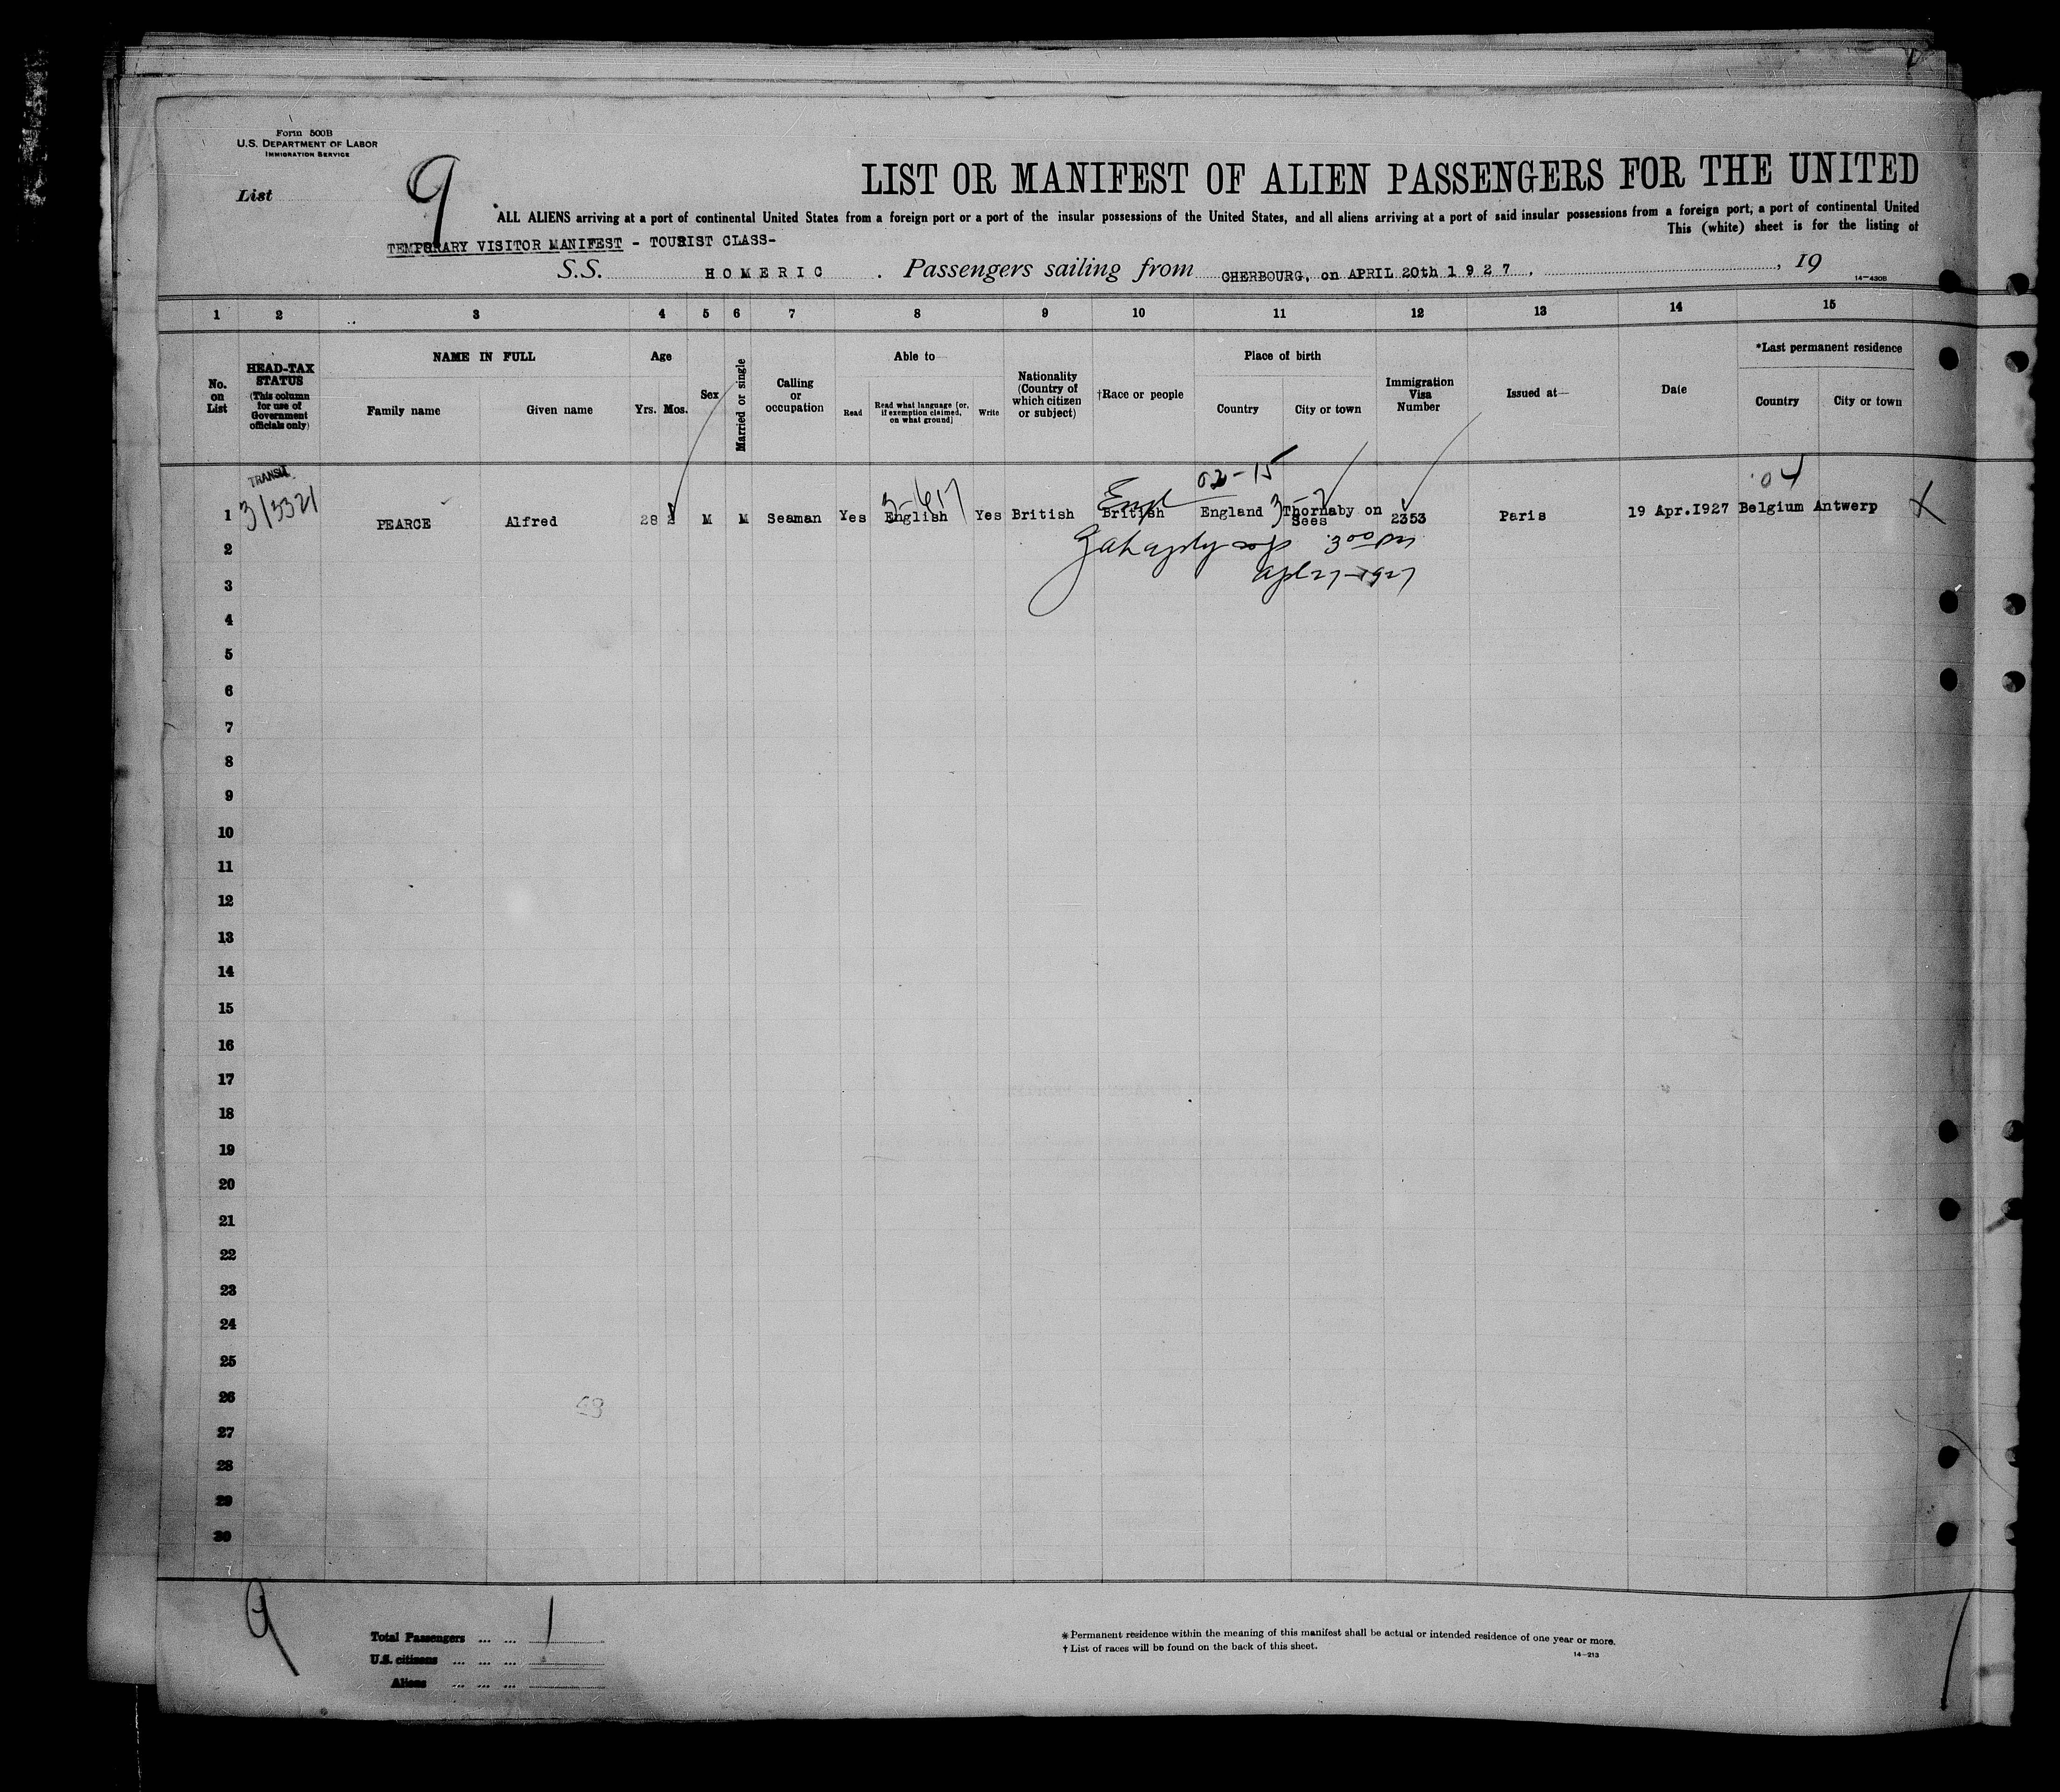 Form 500B
U.S. DEPARTMENT OF LABOR
IMMIGRATION SERVICE
List 9
LIST OR MANIFEST OF ALIEN PASSENGERS FOR THE UNITED
ALL ALIENS arriving at a port of continental United States from a foreign port or a port of the insular possessions of the United States, and all aliens arriving at a port of said insular possessions from a foreign port, a port of continental United
This (white) sheet is for the listing of
TEMPORARY VISITOR MANIFEST - TOURIST CLASS-
S.S. HOMERIC. Passengers sailing from CHERBOURG, on APRIL 20th 1927, , 19
14-430B
1 2 3 4 5 6 7 8 9 10 11 12 13 14 15
No. on List
HEAD-TAX STATUS (This column for use of Government officials only)
NAME IN FULL
Family name Given name
Age
Yrs. Mos.
Sex
Married or single
Calling or occupation
Able to
Read Read what language [or, if exemption claimed, on what ground] Write
Nationality (Country of which citizen or subject)
†Race or people
Place of birth
Country City or town
Immigration Visa Number
Issued at
Date
*Last permanent residence
Country City or town
TRANSIT
02-15
04
1 PEARCE Alfred 28 2 M M Seaman Yes English Yes British British England Thornaby on Sees 2353 Paris 19 Apr.1927 Belgium Antwerp X
Engl
2
3 00 pm
3
Apl 27-1927
4
5
6
7
8
9
10
11
12
13
14
15
16
17
18
19
20
21
22
23
24
25
26
27
28
29
30
9
Total Passengers ... ... 1
U.S. citizens ... ... ...
Aliens ... ... ...
* Permanent residence within the meaning of this manifest shall be actual or intended residence of one year or more.
† List of races will be found on the back of this sheet.
14-213